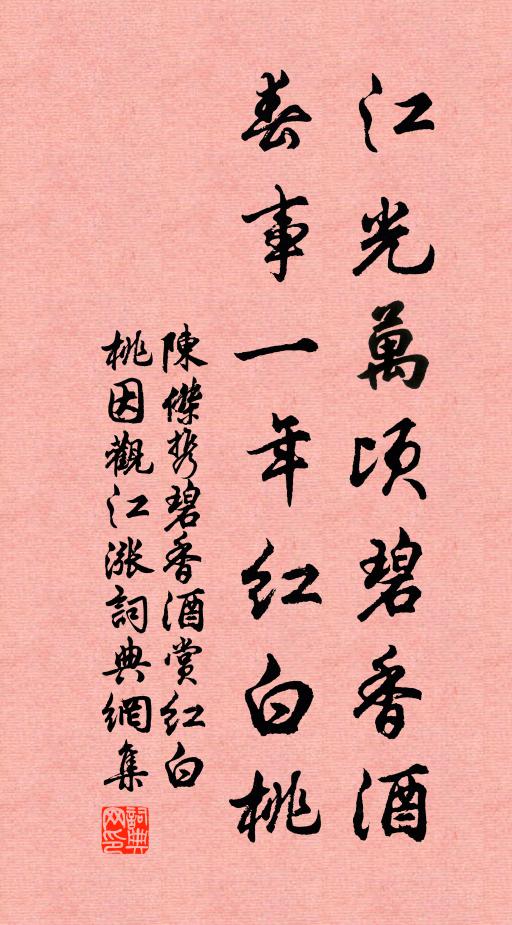 江光萬頃碧香酒
春事一年紅白桃
陳傑携碧香酒賞紅白
桃因觀江漲詞典網集
詞典网印